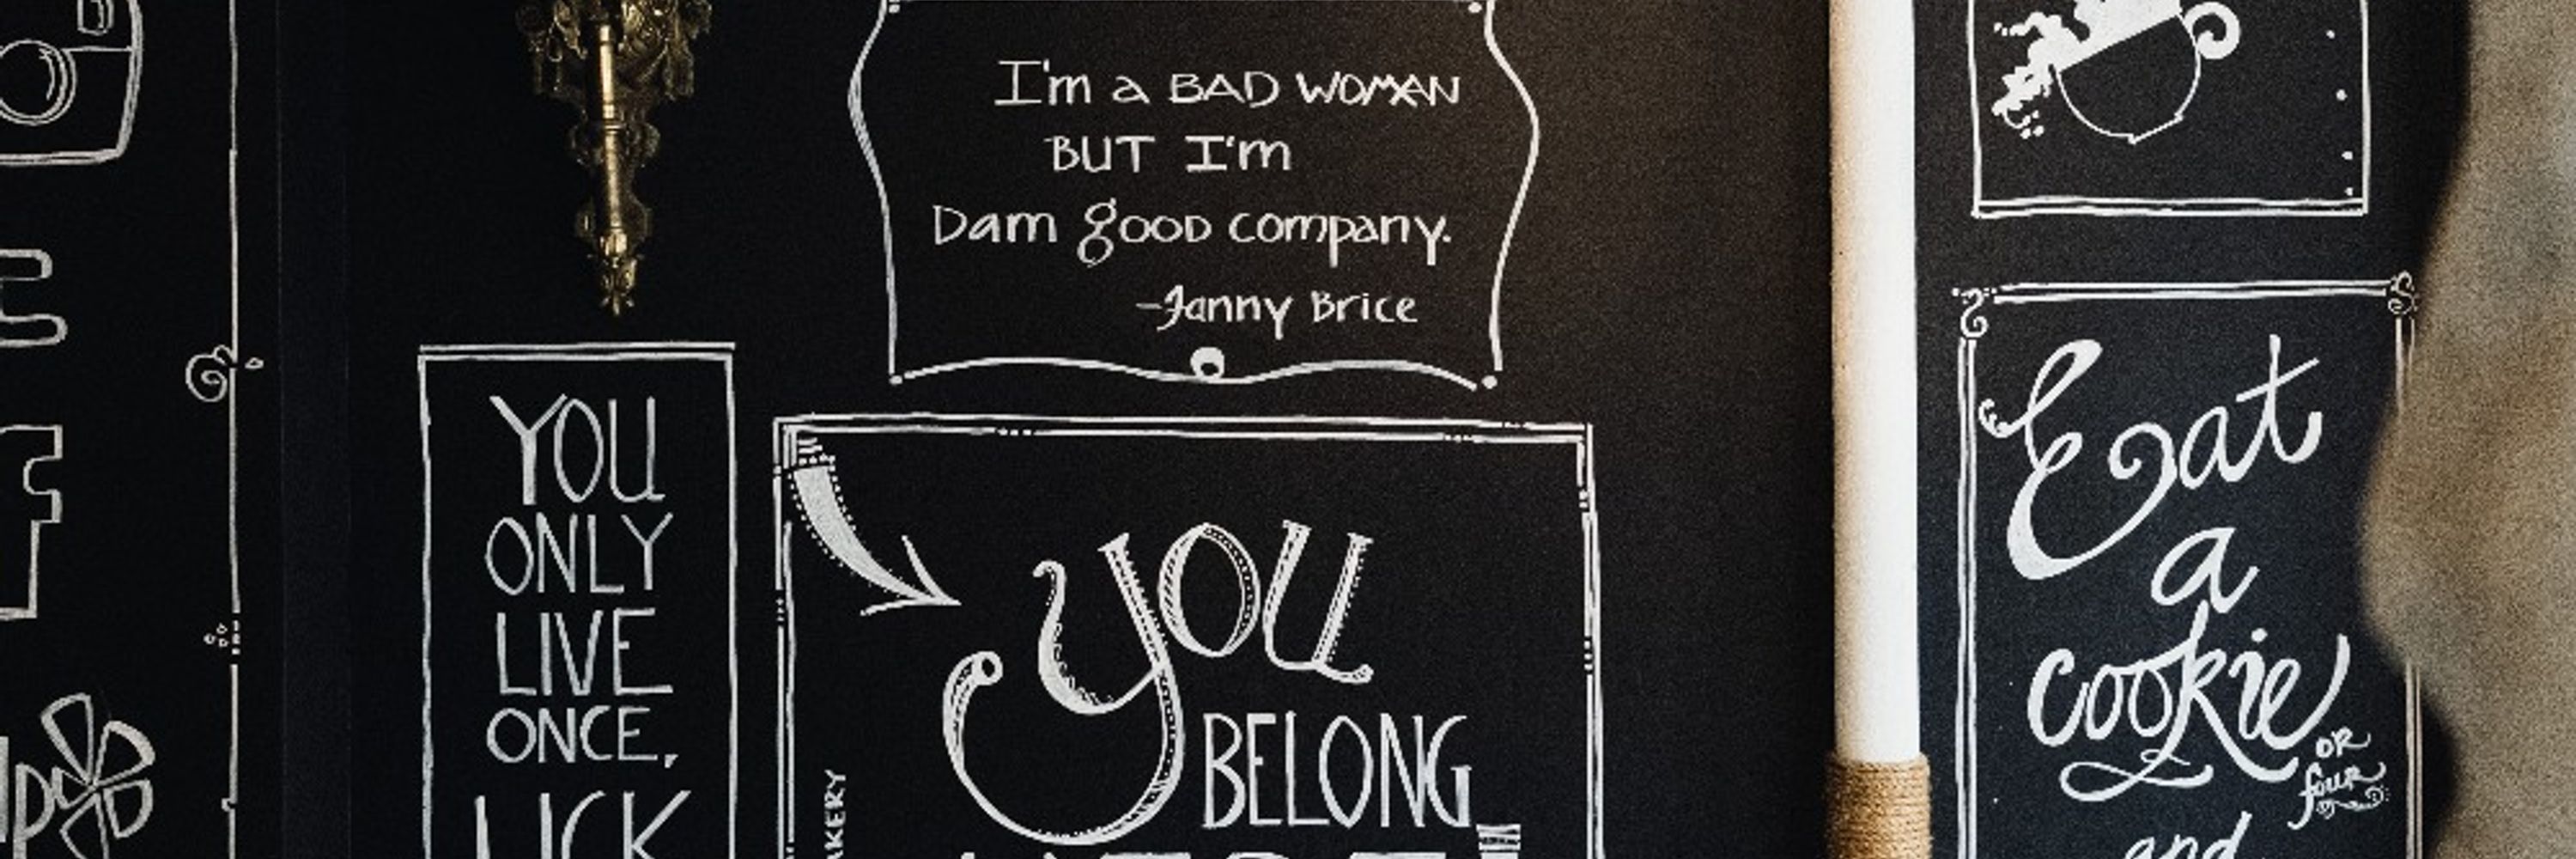 I'm a BAD WOMAN
BUT I'm
Dam good company.
-Fanny Brice
YOU
ONLY
LIVE
ONCE,
LICK
YOU
BELONG
Eat
a
cookie
OR
four
and